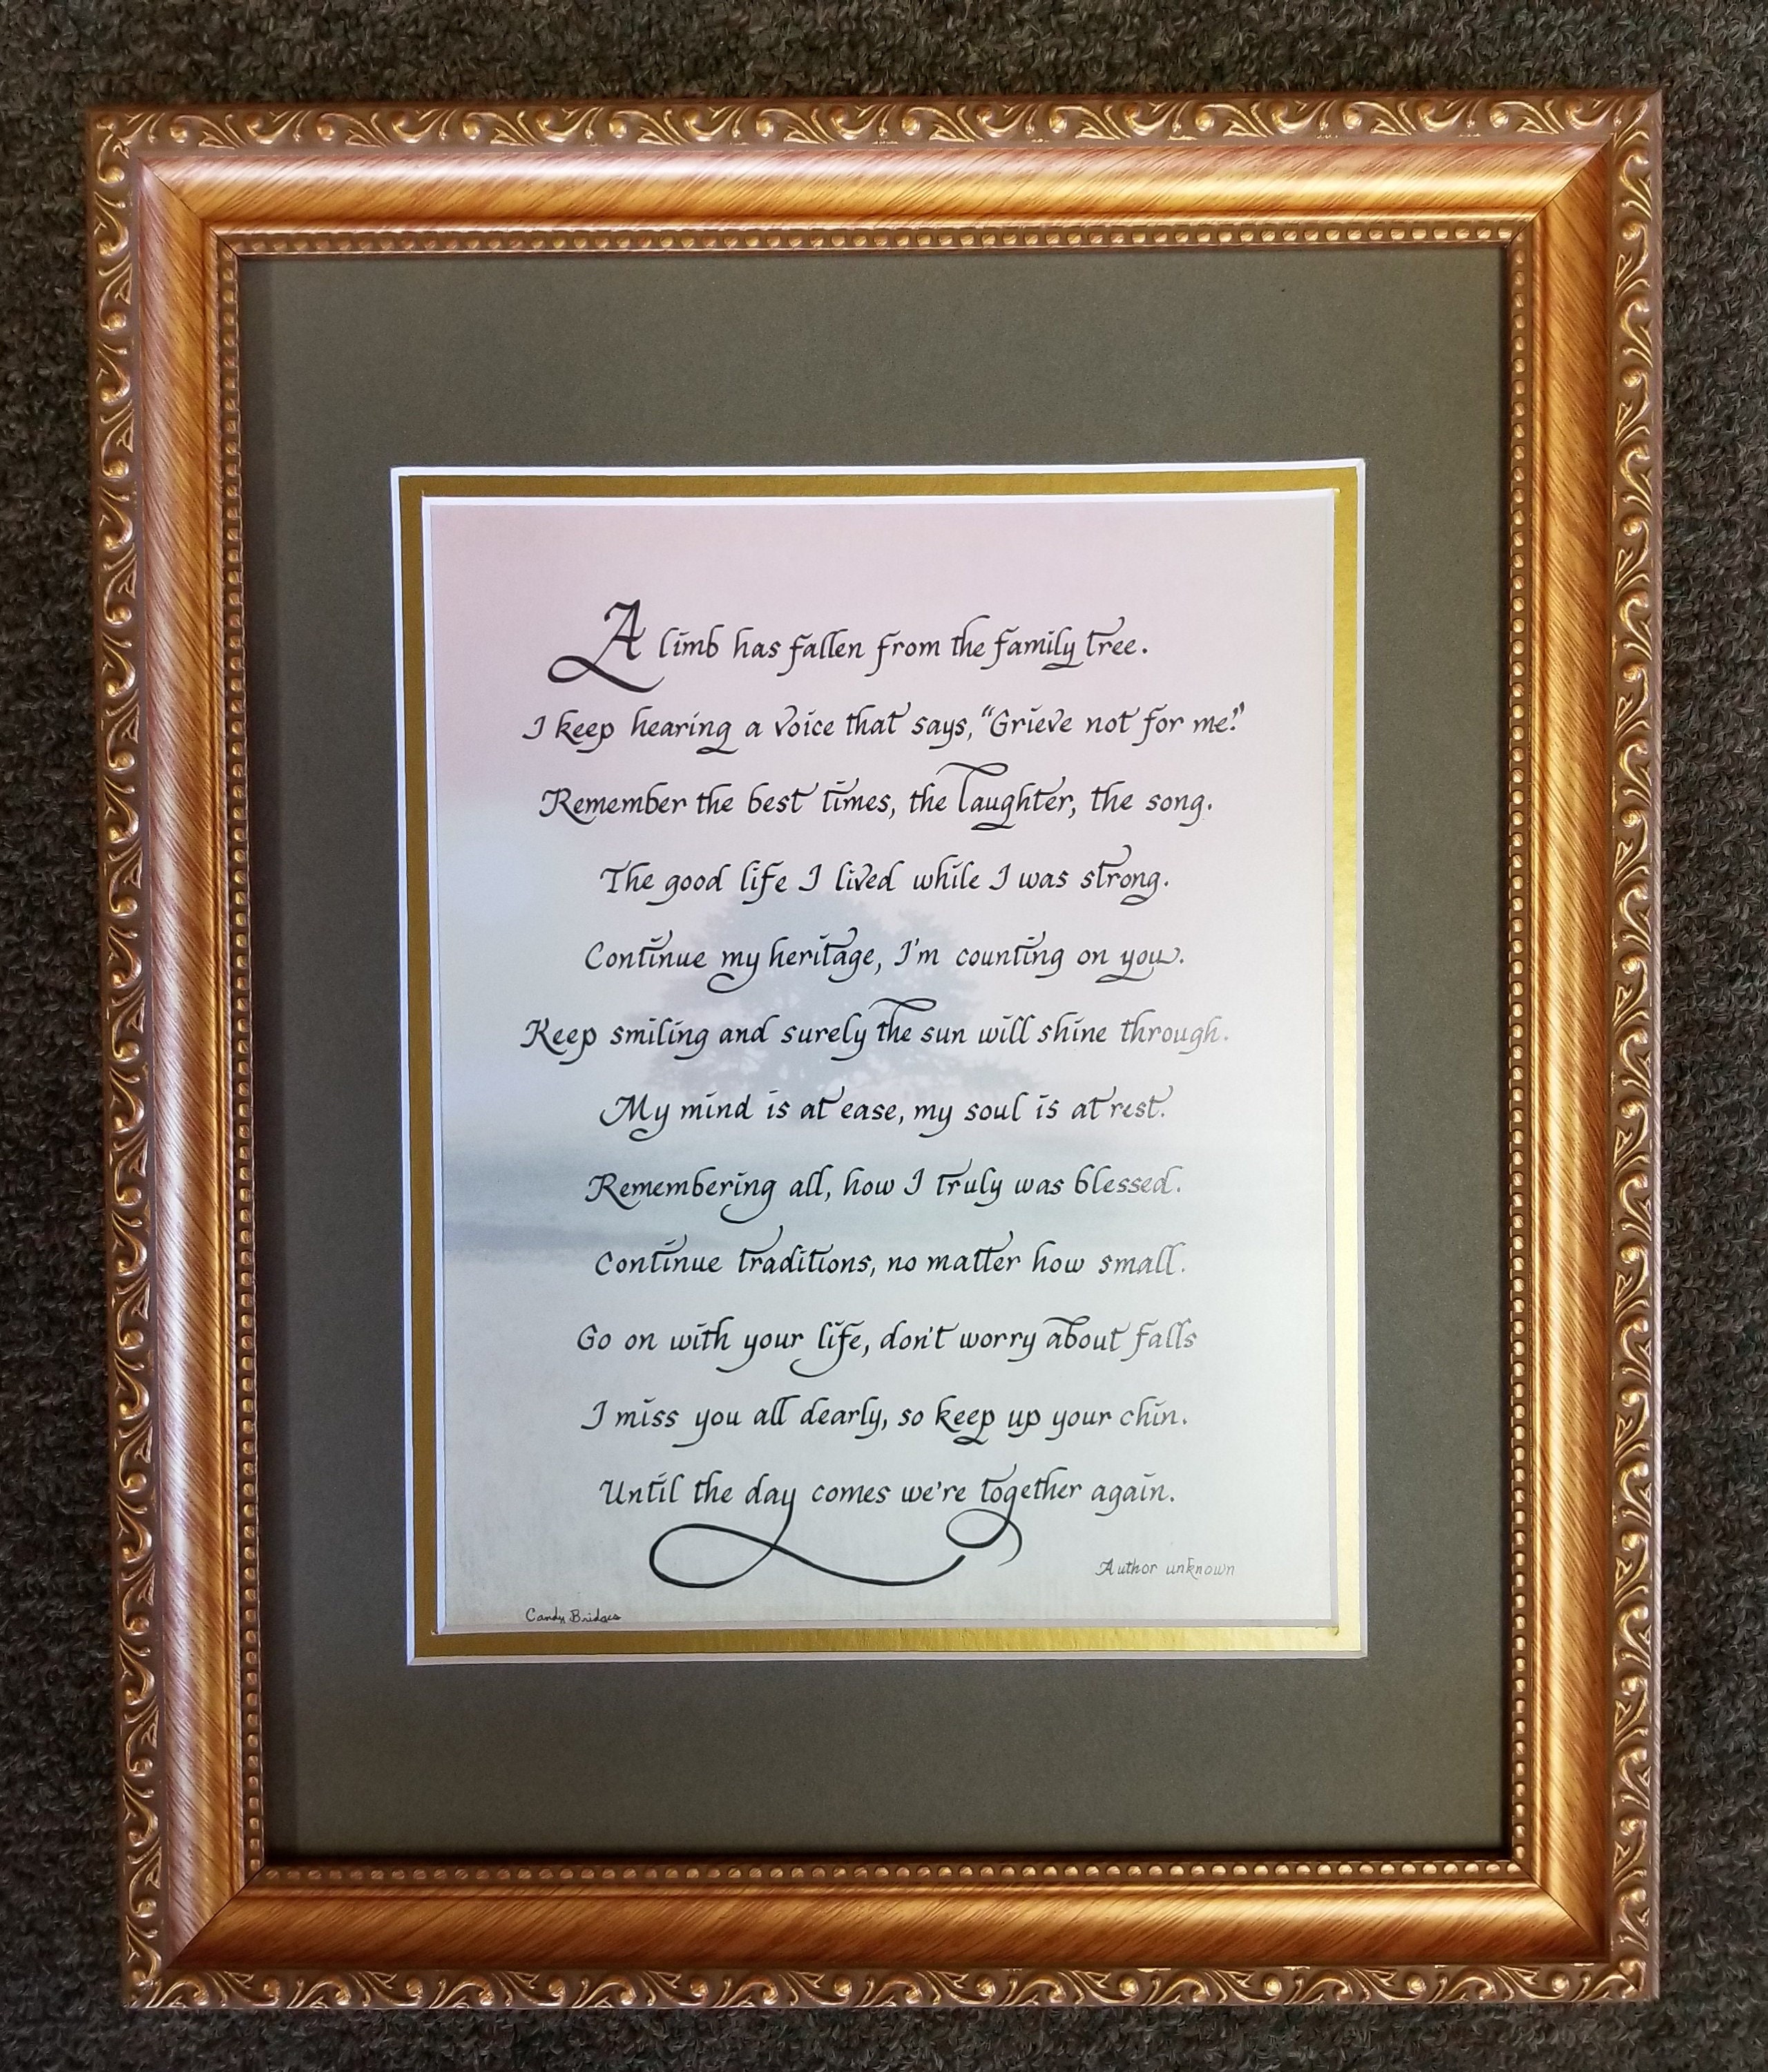 A limb has fallen from the family tree.
I keep hearing a voice that says, "Grieve not for me."
Remember the best times, the laughter, the song.
The good life I lived while I was strong.
Continue my heritage, I'm counting on you.
Keep smiling and surely the sun will shine through.
My mind is at ease, my soul is at rest.
Remembering all, how I truly was blessed.
Continue traditions, no matter how small.
Go on with your life, don't worry about falls
I miss you all dearly, so keep up your chin.
Until the day comes we're together again.
Author unknown
Candy Bridges